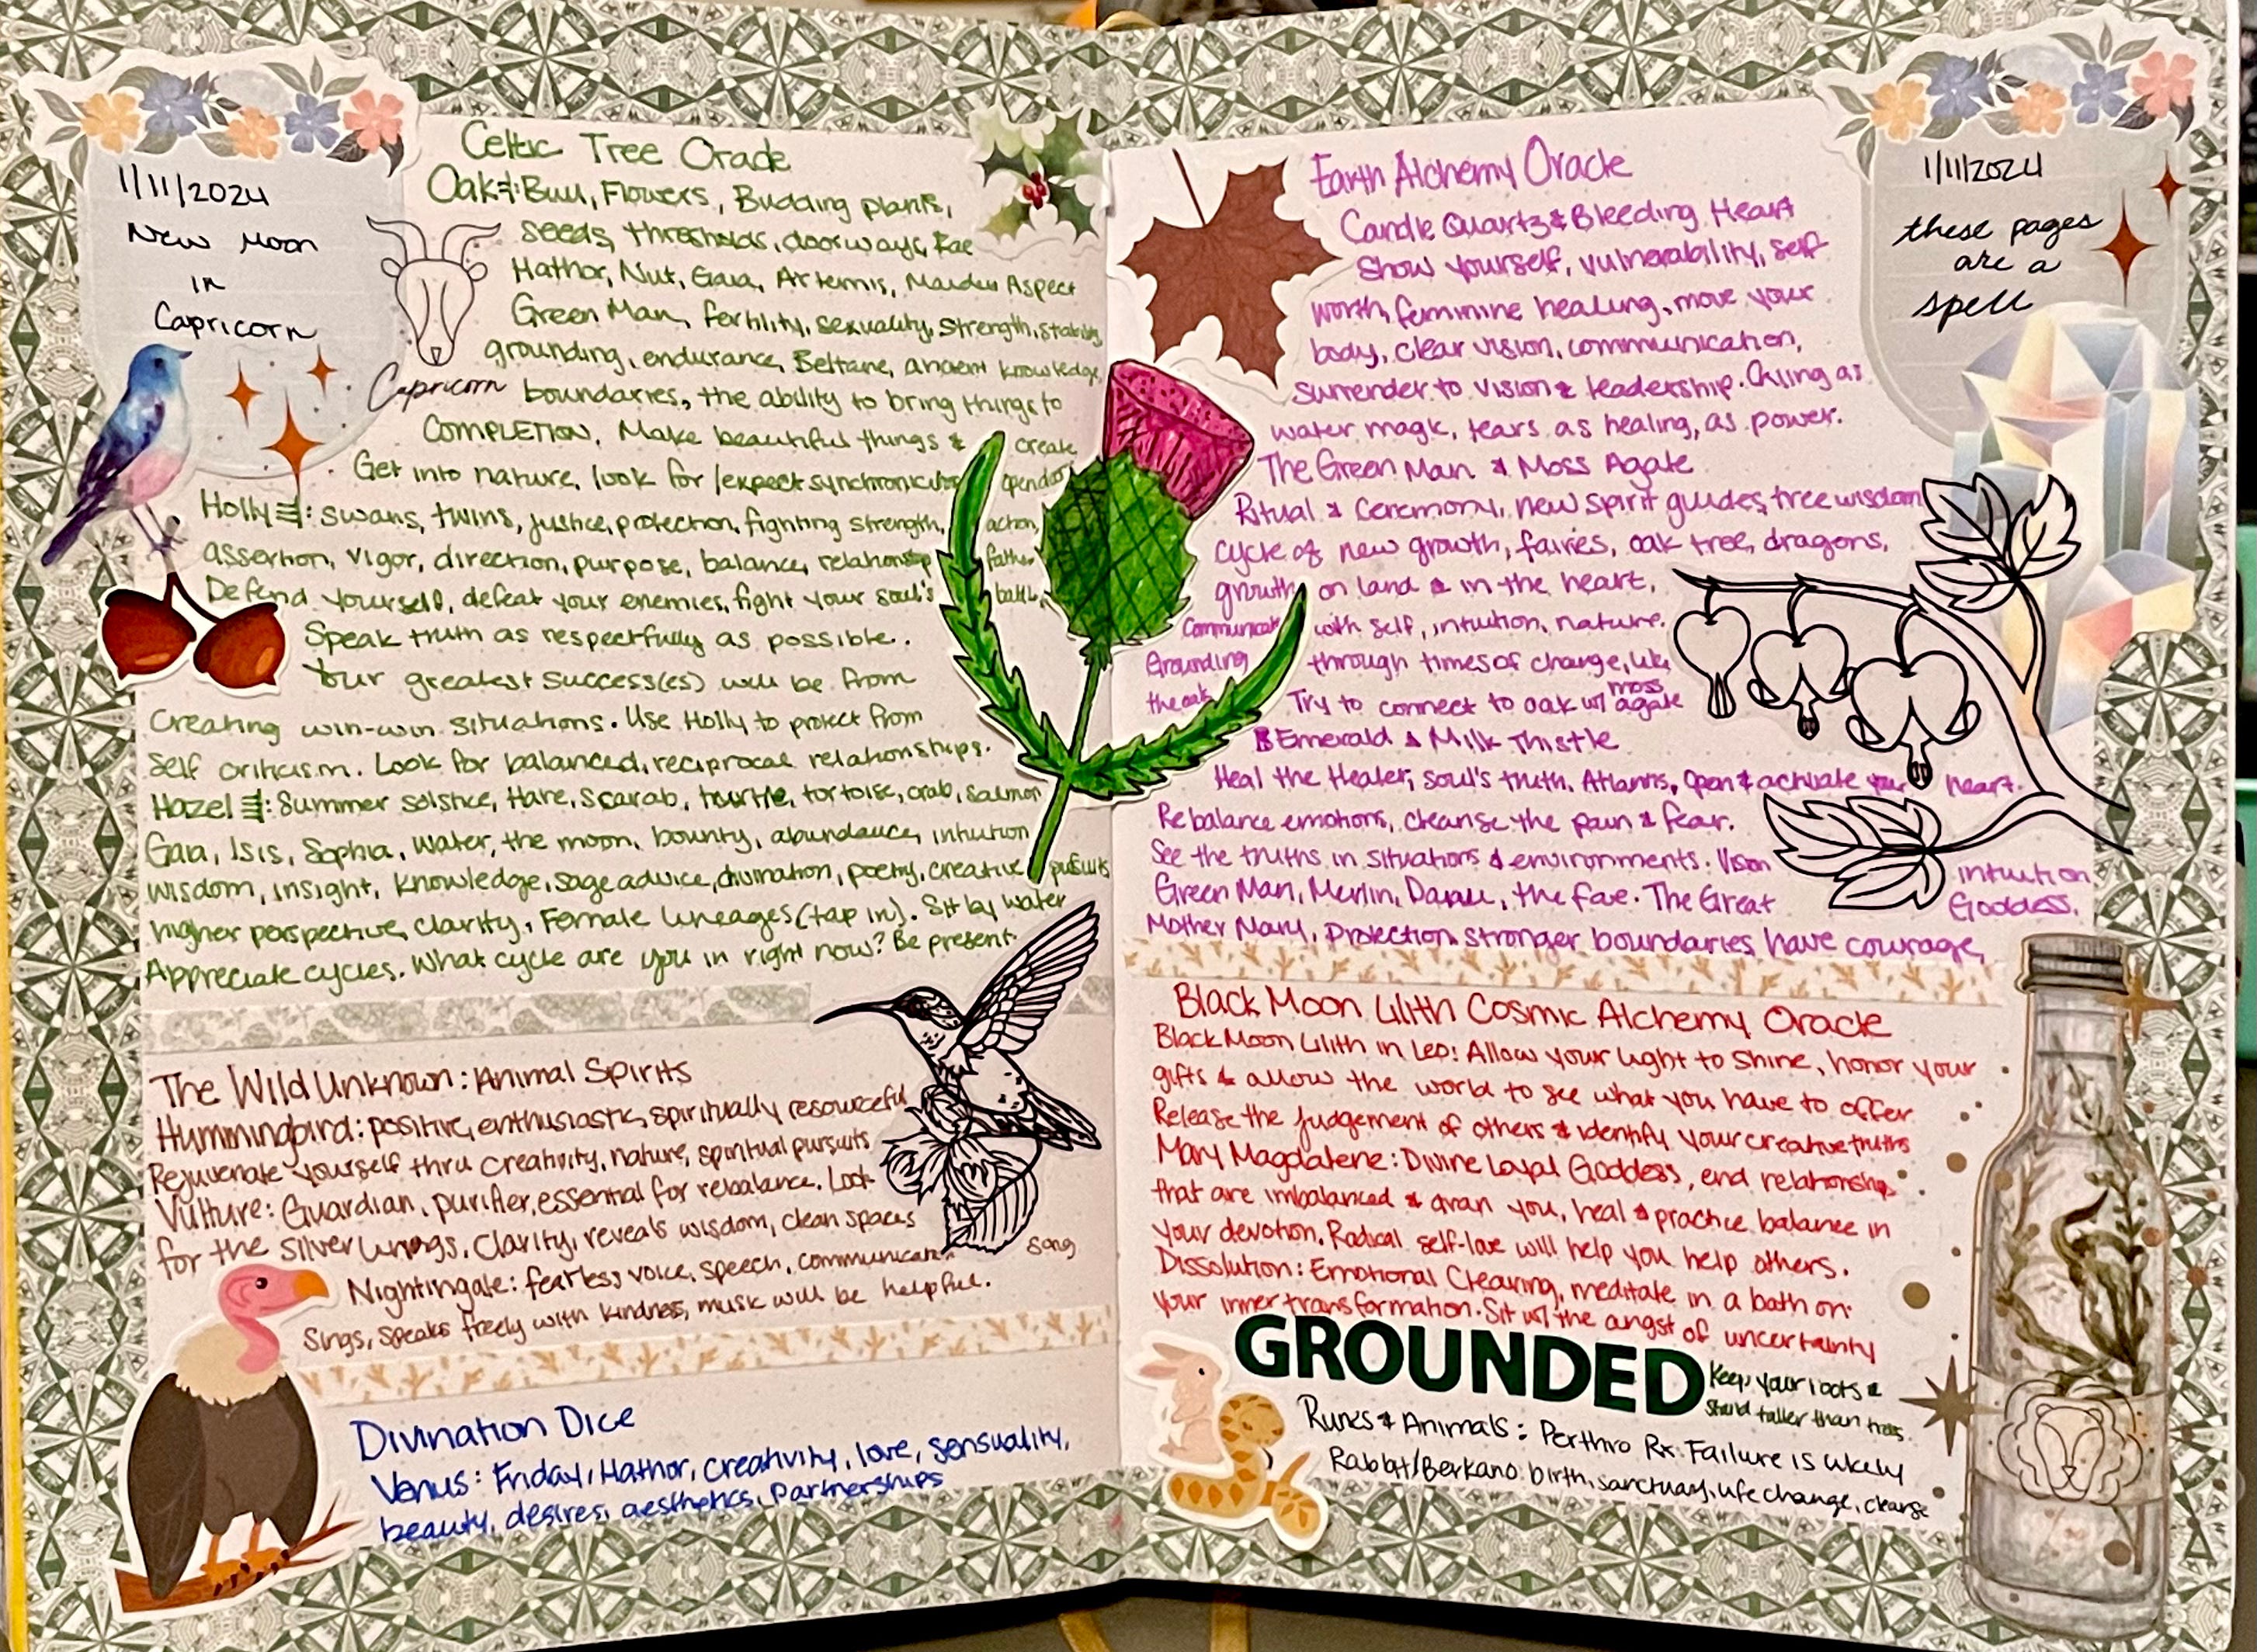 1/11/2024
New Moon
in
Capricorn
Capricorn
Celtic Tree Oracle
Oak: Bull, Flowers, Budding plants,
seeds, thresholds, doorways, Fae
Hathor, Nut, Gaia, Artemis, Maiden Aspect
Green Man, fertility, sexuality, strength, stability,
grounding, endurance, Beltane, ancient knowledge,
boundaries, the ability to bring things to
COMPLETION. Make beautiful things & create
Get into nature, look for/expect synchronicities
Holly: swans, twins, justice, protection, fighting strength, action,
assertion, vigor, direction, purpose, balance, relationship father
Defend yourself, defeat your enemies, fight your soul's battle,
Speak truth as respectfully as possible.
Your greatest success(es) will be from
creating win-win situations. Use Holly to protect from
self criticism. Look for balanced, reciprocal relationships.
Hazel: Summer solstice, Hare, Scarab, turtle, tortoise, crab, salmon
Gaia, Isis, Sophia, water, the moon, bounty, abundance, intuition
wisdom, insight, knowledge, sage advice, divination, poetry, creative pursuits
higher perspective, clarity, Female lineages (tap in). Sit by water
Appreciate cycles. What cycle are you in right now? Be present.
The Wild Unknown: Animal Spirits
Hummingbird: positive, enthusiastic, spiritually resourceful
Rejuvenate yourself thru creativity, nature, spiritual pursuits
Vulture: Guardian, purifier, essential for rebalance. Look
for the silver linings. Clarity, reveals wisdom, clean spaces
Nightingale: fearless voice, speech, communication song
Sings, speaks freely with kindness, music will be helpful.
Divination Dice
Venus: Friday, Hathor, creativity, love, sensuality,
beauty, desires, aesthetics, partnerships
1/11/2024
these pages
are a
spell
Earth Alchemy Oracle
Candle Quartz & Bleeding Heart
Show yourself, vulnerability, self
worth, feminine healing, move your
body, clear vision, communication,
surrender to vision & leadership. Crying as
water magk, tears as healing, as power.
The Green Man & Moss Agate
Ritual & Ceremony, new spirit guides, tree wisdom
cycle of new growth, fairies, oak tree, dragons,
growth on land & in the heart,
Communicate with self, intuition, nature.
Grounding through times of change, like
the oak Try to connect to oak w/ moss agate
Emerald & Milk Thistle
Heal the Healer, soul's truth, Atlantis, Open & activate your heart.
Rebalance emotions, cleanse the pain & fear.
See the truths in situations & environments. Vision intuition
Green Man, Merlin, Danu, the fae. The Great Goddess,
Mother Mary, Protection stronger boundaries have courage,
Black Moon Lilith Cosmic Alchemy Oracle
Black Moon Lilith in Leo: Allow your light to shine, honor your
gifts & allow the world to see what you have to offer
Release the judgement of others & identify your creative truths
Mary Magdalene: Divine Loyal Goddess, end relationships
that are imbalanced & drain you, heal & practice balance in
your devotion. Radical self-love will help you help others.
Dissolution: Emotional Clearing, meditate in a bath on
your inner transformation. Sit w/ the angst of uncertainty
GROUNDED
Keep your roots &
stand taller than trees.
Runes & Animals: Perthro Rx Failure is likely
Rabbit/Berkano: birth, sanctuary, life change, cleanse